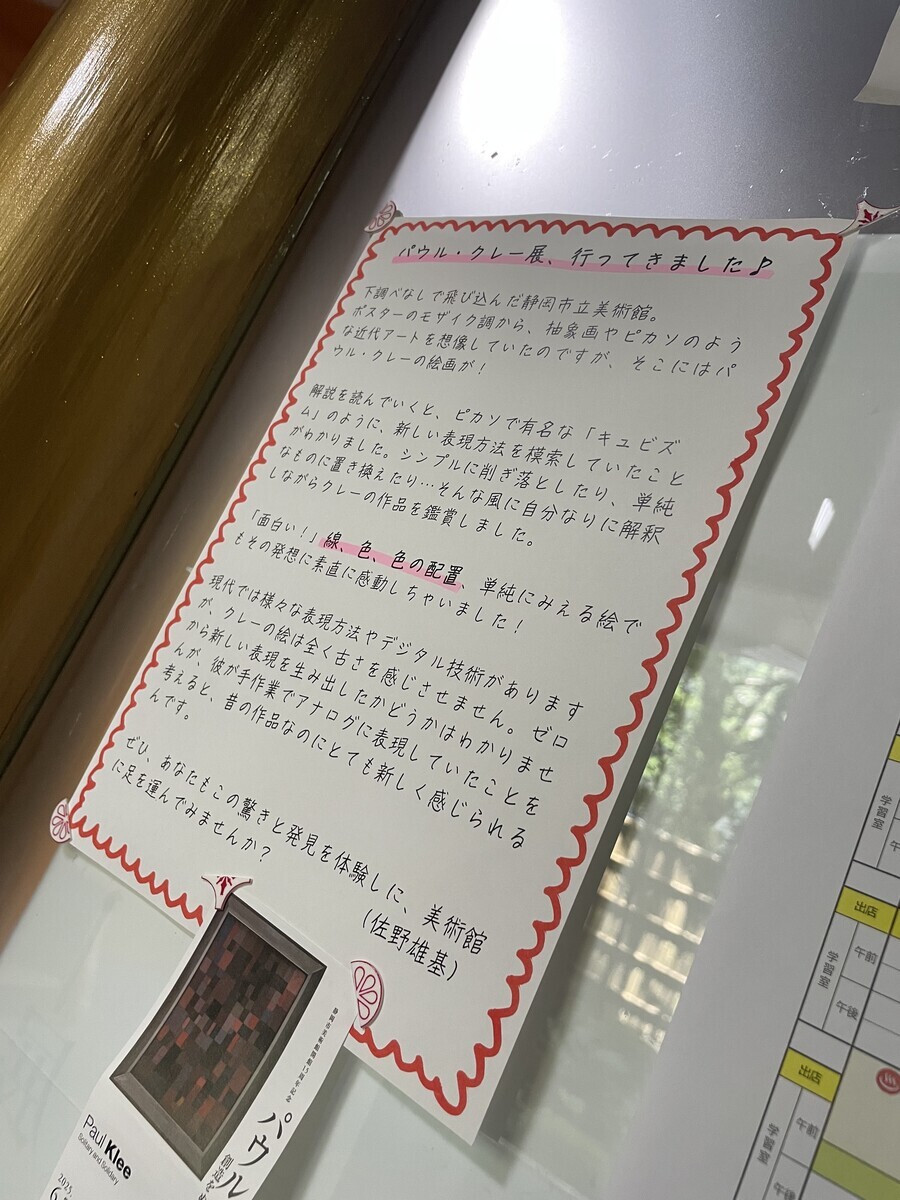 パウル・クレー展、行ってきました♪
下調べなしで飛び込んだ静岡市立美術館。
ポスターのモザイク調から、抽象画やピカソのよう
な近代アートを想像していたのですが、そこにはパ
ウル・クレーの絵画が！
解説を読んでいくと、ピカソで有名な「キュビズ
ム」のように、新しい表現方法を模索していたこと
がわかりました。シンプルに削ぎ落としたり、単純
なものに置き換えたり…そんな風に自分なりに解釈
しながらクレーの作品を鑑賞しました。
「面白い！」線、色、色の配置、単純にみえる絵で
もその発想に素直に感動しちゃいました！
現代では様々な表現方法やデジタル技術があります
が、クレーの絵は全く古さを感じさせません。ゼロ
から新しい表現を生み出したかどうかはわかりませ
んが、彼が手作業でアナログに表現していたことを
考えると、昔の作品なのにとても新しく感じられる
んです。
ぜひ、あなたもこの驚きと発見を体験しに、美術館
に足を運んでみませんか？
(佐野雄基)
静岡市美術館開館15周年記念
パウル
創造を
Paul Klee
Solitary and Solidary
2025.
6.
学習室
午
出店
学習室
午前
午後
出店
学習室
午前
午後